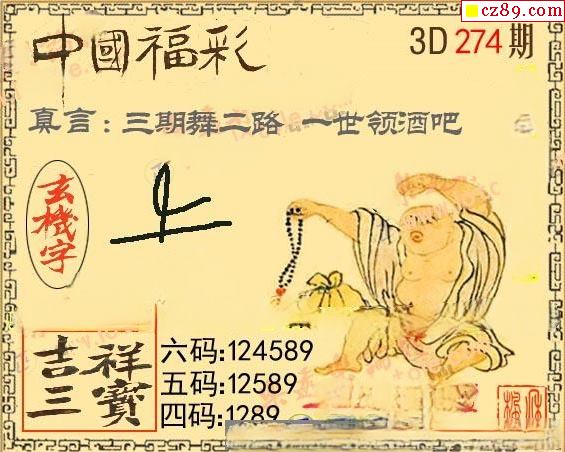 cz89.com
中國福彩
3D 274 期
真言：三期舞二路 一世领酒吧
玄機字
吉祥三寶
六码:124589
五码:12589
四码:1289